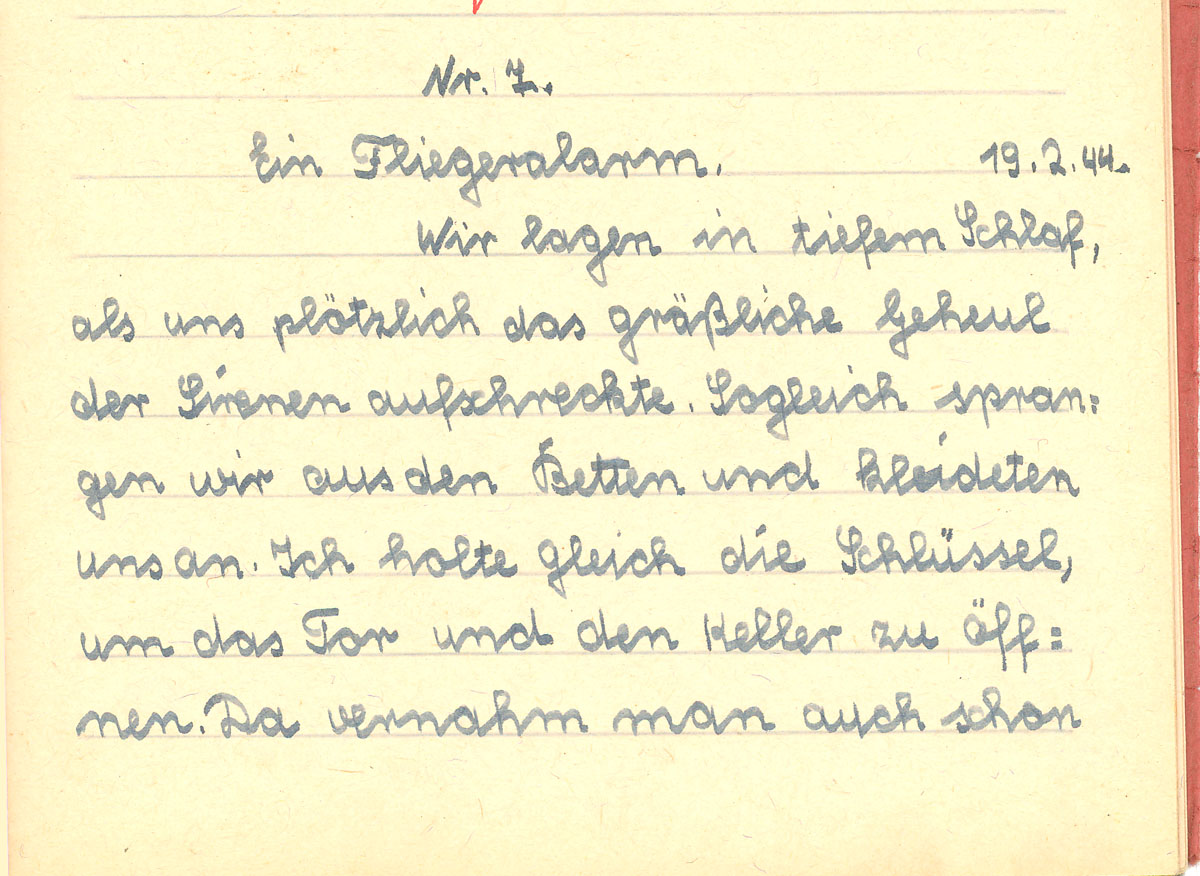 Nr. 7.
Ein Fliegeralarm. 19.2.44.
Wir lagen in tiefem Schlaf,
als uns plötzlich das gräßliche Geheul
der Sirenen aufschreckte. Sogleich spran=
gen wir aus den Betten und kleideten
uns an. Ich holte gleich die Schlüssel,
um das Tor und den Keller zu öff=
nen. Da vernahm man auch schon